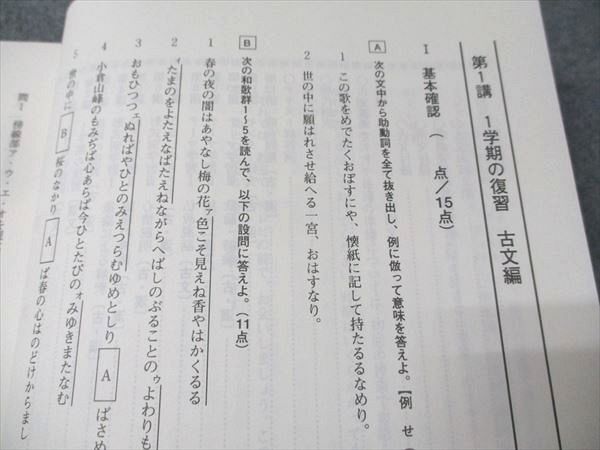 第1講 1学期の復習 古文編
Ⅰ 基本確認 ( 点/15点)
A 次の文中から助動詞を全て抜き出し、例に倣って意味を答えよ。【例 せ
1 この歌をめでたくおぼすにや、懐紙に記して持たるなめり。
2 世の中に願はれさせ給へる一宮、おはすなり。
B 次の和歌群1~5を読んで、以下の設問に答えよ。(11点)
1 春の夜の闇はあやなし梅の花ァ色こそ見えね香やはかくるる
2 ィたまのをよたえなばたえねながらへばしのぶることのゥよわりも
3 おもひつつェぬればやひとのみえつらむゆめとしり A ばさめ
4 小倉山峰のもみぢば心あらば今ひとたびのォみゆきまたなむ
5 世の中に B 桜のなかり A ば春の心はのどけからまし
問1 傍線部ア・ウ・エ・オ